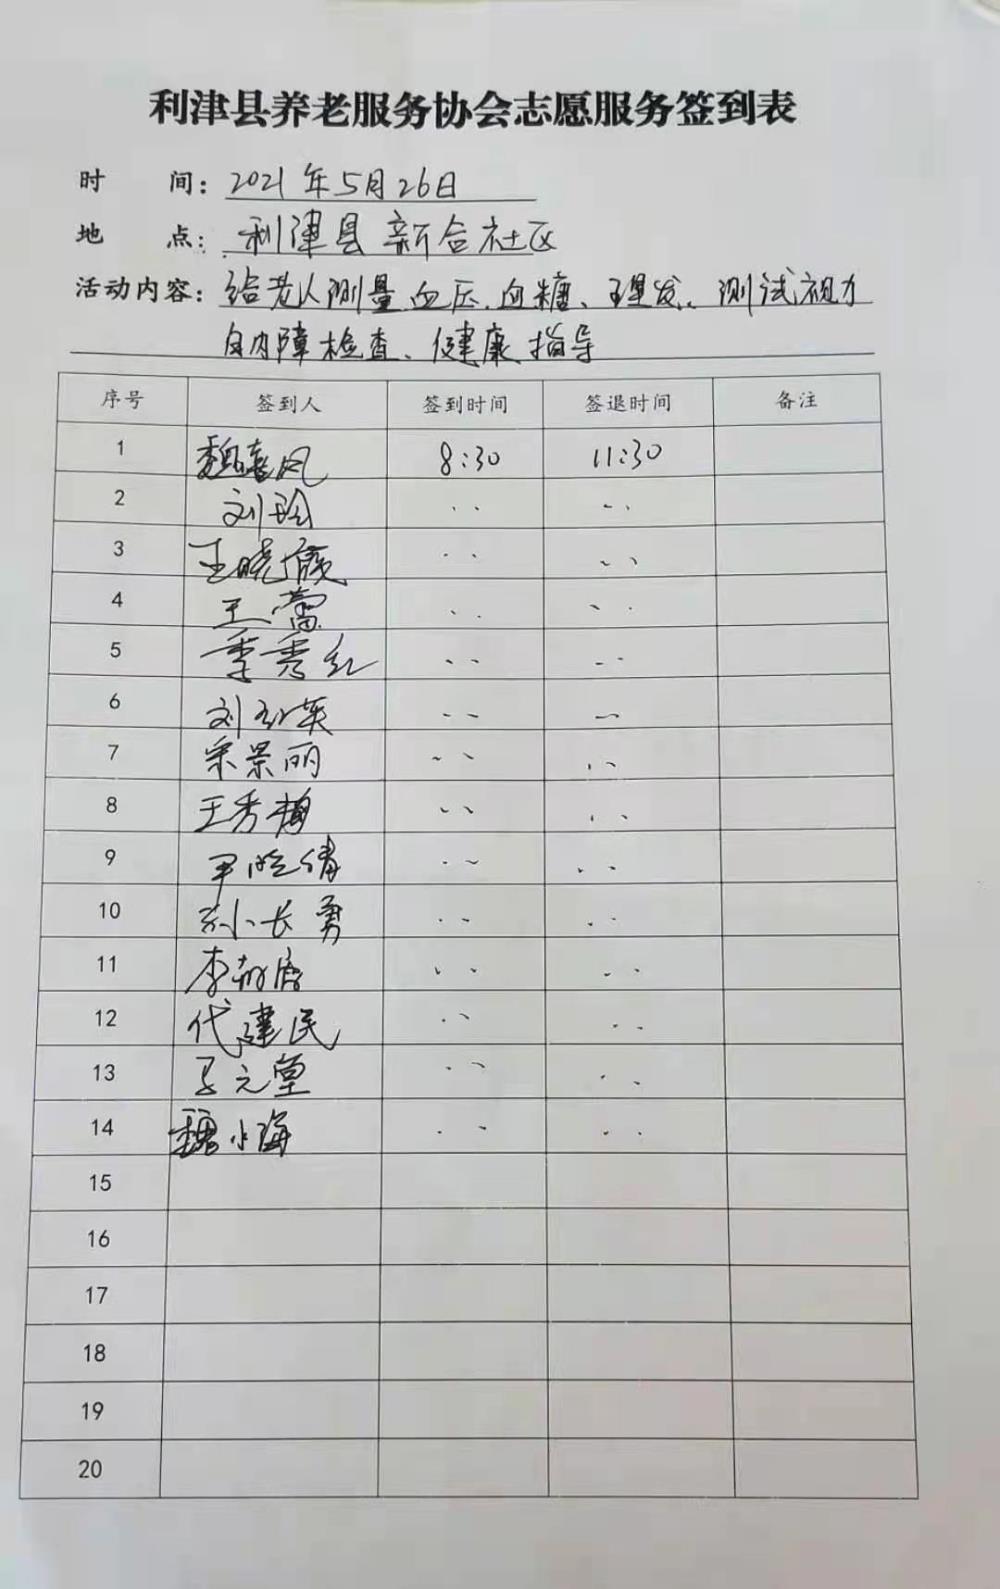 利津县养老服务协会志愿服务签到表
时 间：2021年5月26日
地 点：利津县新合社区
活动内容：给老人测量血压、血糖、理发、测试视力
白内障检查、健康指导
序号 签到人 签到时间 签退时间 备注
1 魏喜凤 8:30 11:30
2 刘玲
3 王晓霞
4 王蕾
5 季秀红
6 刘 英
7 宋景丽
8 王秀梅
9 尹晓倩
10 孙长勇
11 李
12 代建民
13 元堂
14 魏小海
15
16
17
18
19
20